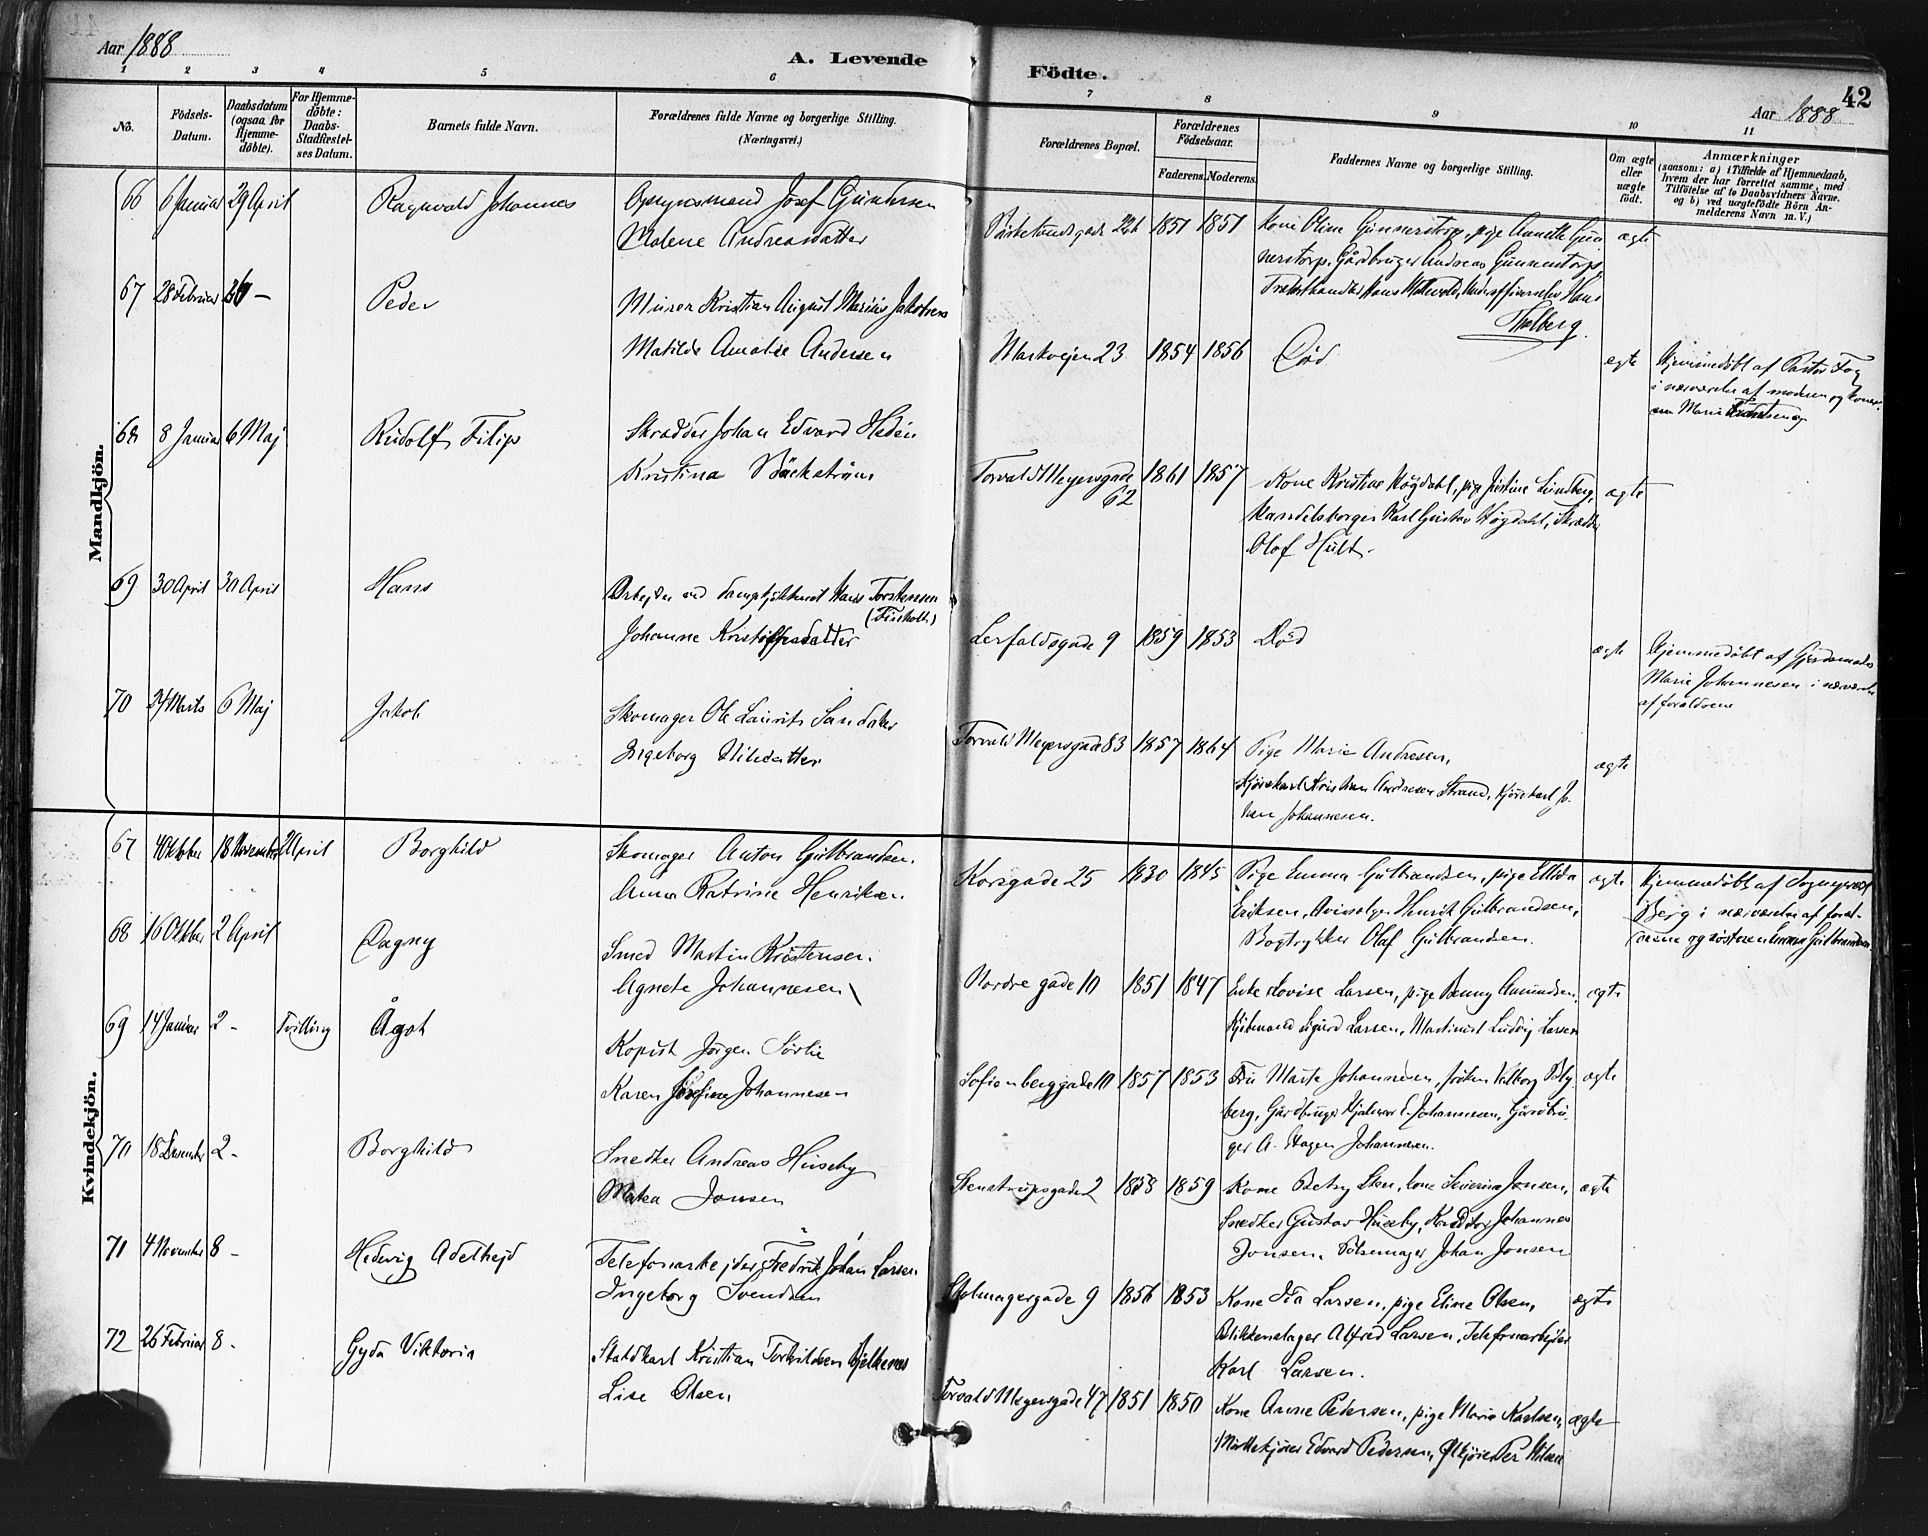 Aar 1888
A. Levende
Födte.
42
Aar 1888
1 2 3 4 5 6 7 8 9 10 11
No.
Födsels-
Datum.
Daabsdatum
(ogsaa för
Hjemme-
döbte).
For Hjemme-
döbte:
Daabs-
Stadfæstel-
ses Datum.
Barnets fulde Navn.
Forældrenes fulde Navne og borgerlige Stilling.
(Næringsvei.)
Forældrenes Bopæl.
Forældrenes
Födselsaar.
Faderens. Moderens.
Faddernes Navne og borgerlige Stilling.
Om ægte
eller
uægte
födt.
Anmærkninger
(saasom: a) i Tilfælde af Hjemmedaab,
hvem der har forrettet samme, med
Tilföielse af to Daabsvidners Navne.
og b) ved uægtefödte Börn An-
melderens Navn m. V.)
Mandkjön.
66 6 Januar 29 April Ragnvald Johannes Opsynsmand Josef Gundersen
Malene Andreasdatter
Birkelundsgade 22b 1851 1851 Kone Oline Gunnerstorp, pige Annette Gun-
nerstorp, Gårdbruger Andreas Gunnerstorp,
Hans
Thalberg.
ægte
67 28 Februar Peder Murer Kristian August Marius Jakobsen
Matilde Amalie Andersen
Markvejen 23 1854 1856 Död
ægte Hjemmedöbt af Pastor Fog
i nærværelse af moderen og
Marie
68 8 Januar 6 Maj Rudolf Filip Skrædder Johan Edvard Hedén
Kristina Bäckström
Torvald Meyersgade
62
1861 1857 Kone Kristine Högdahl, pige Justine Lundberg,
Handelsborger Karl Gustav Högdahl, Skrædder
Olof Hult.
ægte
69 30 April 30 April Hans Arbejder ved dampkjökkenet Hans Torstensen
Johanne Kristoffersdatter
Lerfaldsgade 9 1859 1853 Död
ægte Hjemmedöbt af Gjordemoder
Marie Johannesen i nærværelse
af forældrene
70 24 Marts 6 Maj Jakob Skomager Ole Laurits Sandaker
Ingeborg Nilsdatter
Torvald Meyersgade 83 1857 1864 Pige Marie Andresen,
Kjörekarl Kristian Andresen Strand, Kjörekarl Jo-
han Johannesen.
ægte
Kvindekjön.
67 4 Oktober 18 November 2 April Borghild Skomager Anton Gulbrandsen.
Anna Katrine Henriksen.
Korsgade 25 1830 1845 Pige Emma Gulbrandsen, pige Ellida
Eriksen, Avissælger Henrik Gulbrandsen,
Bogtrykker Olaf Gulbrandsen.
ægte Hjemmedöbt af Sognepræst
Berg i nærværelse af foræl-
drene og söstren Emma Gulbrandsen
68 16 Oktober 2 April Dagny Smed Martin Kristensen.
Agnete Johannesen
Nordre gade 10 1851 1847 Enke Lovise Larsen, pige Benny Amundsen,
Kjöbmand Sigurd Larsen, Maskinist Ludvig Larsen
ægte
69 14 Januar 2 - Tvilling Ågot Kopist Jörgen Sörlie
Karen Josefine Johannesen
Sofienberggade 10 1857 1853 Fru Marte Johannesen, fröken Valborg Bly-
berg, Gårdbruger Hjalmar E. Johannesen, Gårdbru-
ger A. Hagen Johannesen.
ægte
70 18 Desember 2 - Borghild Snedker Andreas Huseby
Matea Jonsen
Stenstrupsgade 2 1858 1859 Kone Betsy Sten, kone Severine Jonsen,
Snedker Gustav Huseby, Konditor Johannes
Jonsen, Pölsemager Johan Jonsen
ægte
71 4 November 8 - Hedevig Adelhejd Telefonarbejder Fredrik Johan Larsen
Ingeborg Svendsen
Skolmagergade 9 1856 1853 Kone Ida Larsen, pige Eline Olsen,
Blikkenslager Alfred Larsen, Telefonarbejder
Karl Larsen.
ægte
72 26 Februar 8 - Gyda Viktoria Staldkarl Kristian Torkildsen Kjelkenes
Lise Olsen
Torvald Meyersgade 47 1851 1850 Kone Anne Pedersen, pige Marie Karlsen,
Edvard Pedersen, Ölkjörer Per Nilsen
ægte